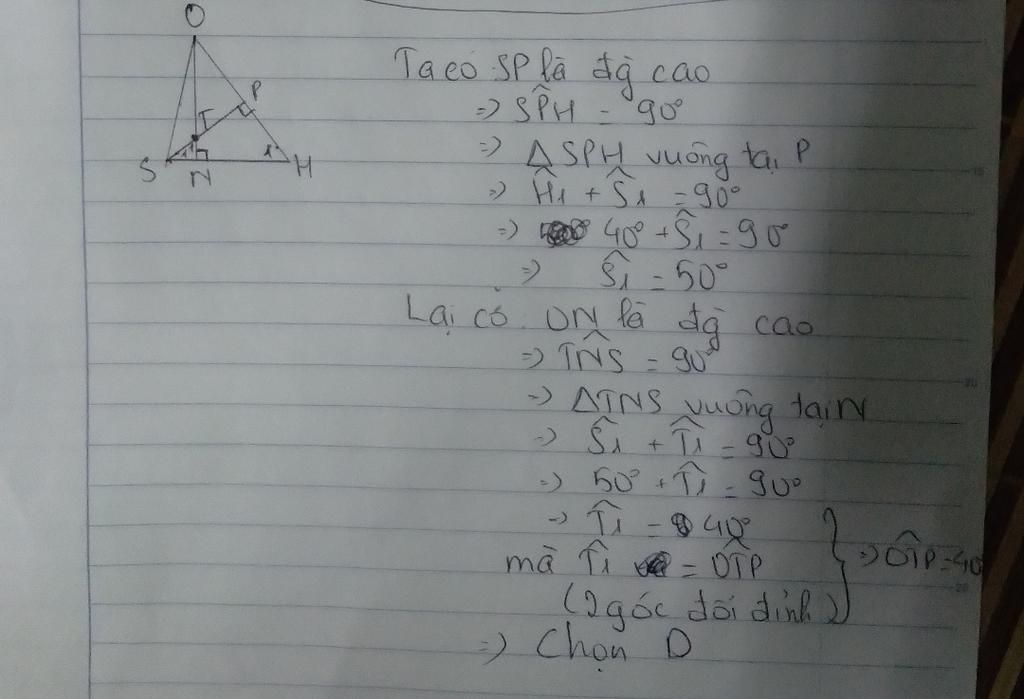 O
P
T
1
1
S
N
H
Ta có SP là đg cao
=> SP̂H = 90°
=> ΔSPH vuông tại P
=> Ĥ1 + Ŝ1 = 90°
=> 40° + Ŝ1 = 90°
=> Ŝ1 = 50°
Lại có ON là đg cao
=> TN̂S = 90°
=> ΔTNS vuông tại N
=> Ŝ1 + T̂1 = 90°
=> 50° + T̂1 = 90°
=> T̂1 = 40°
mà T̂1 = OT̂P
(2 góc đối đỉnh)
} => OT̂P = 40
=> Chọn D